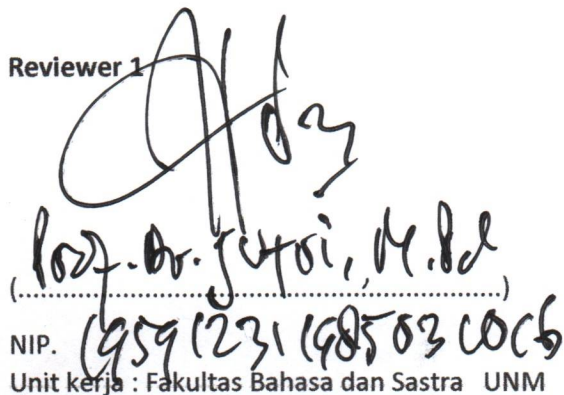 Reviewer 1
Prof. Dr. , M.Pd
(........................................................)
NIP. 19591231198503
Unit kerja : Fakultas Bahasa dan Sastra UNM